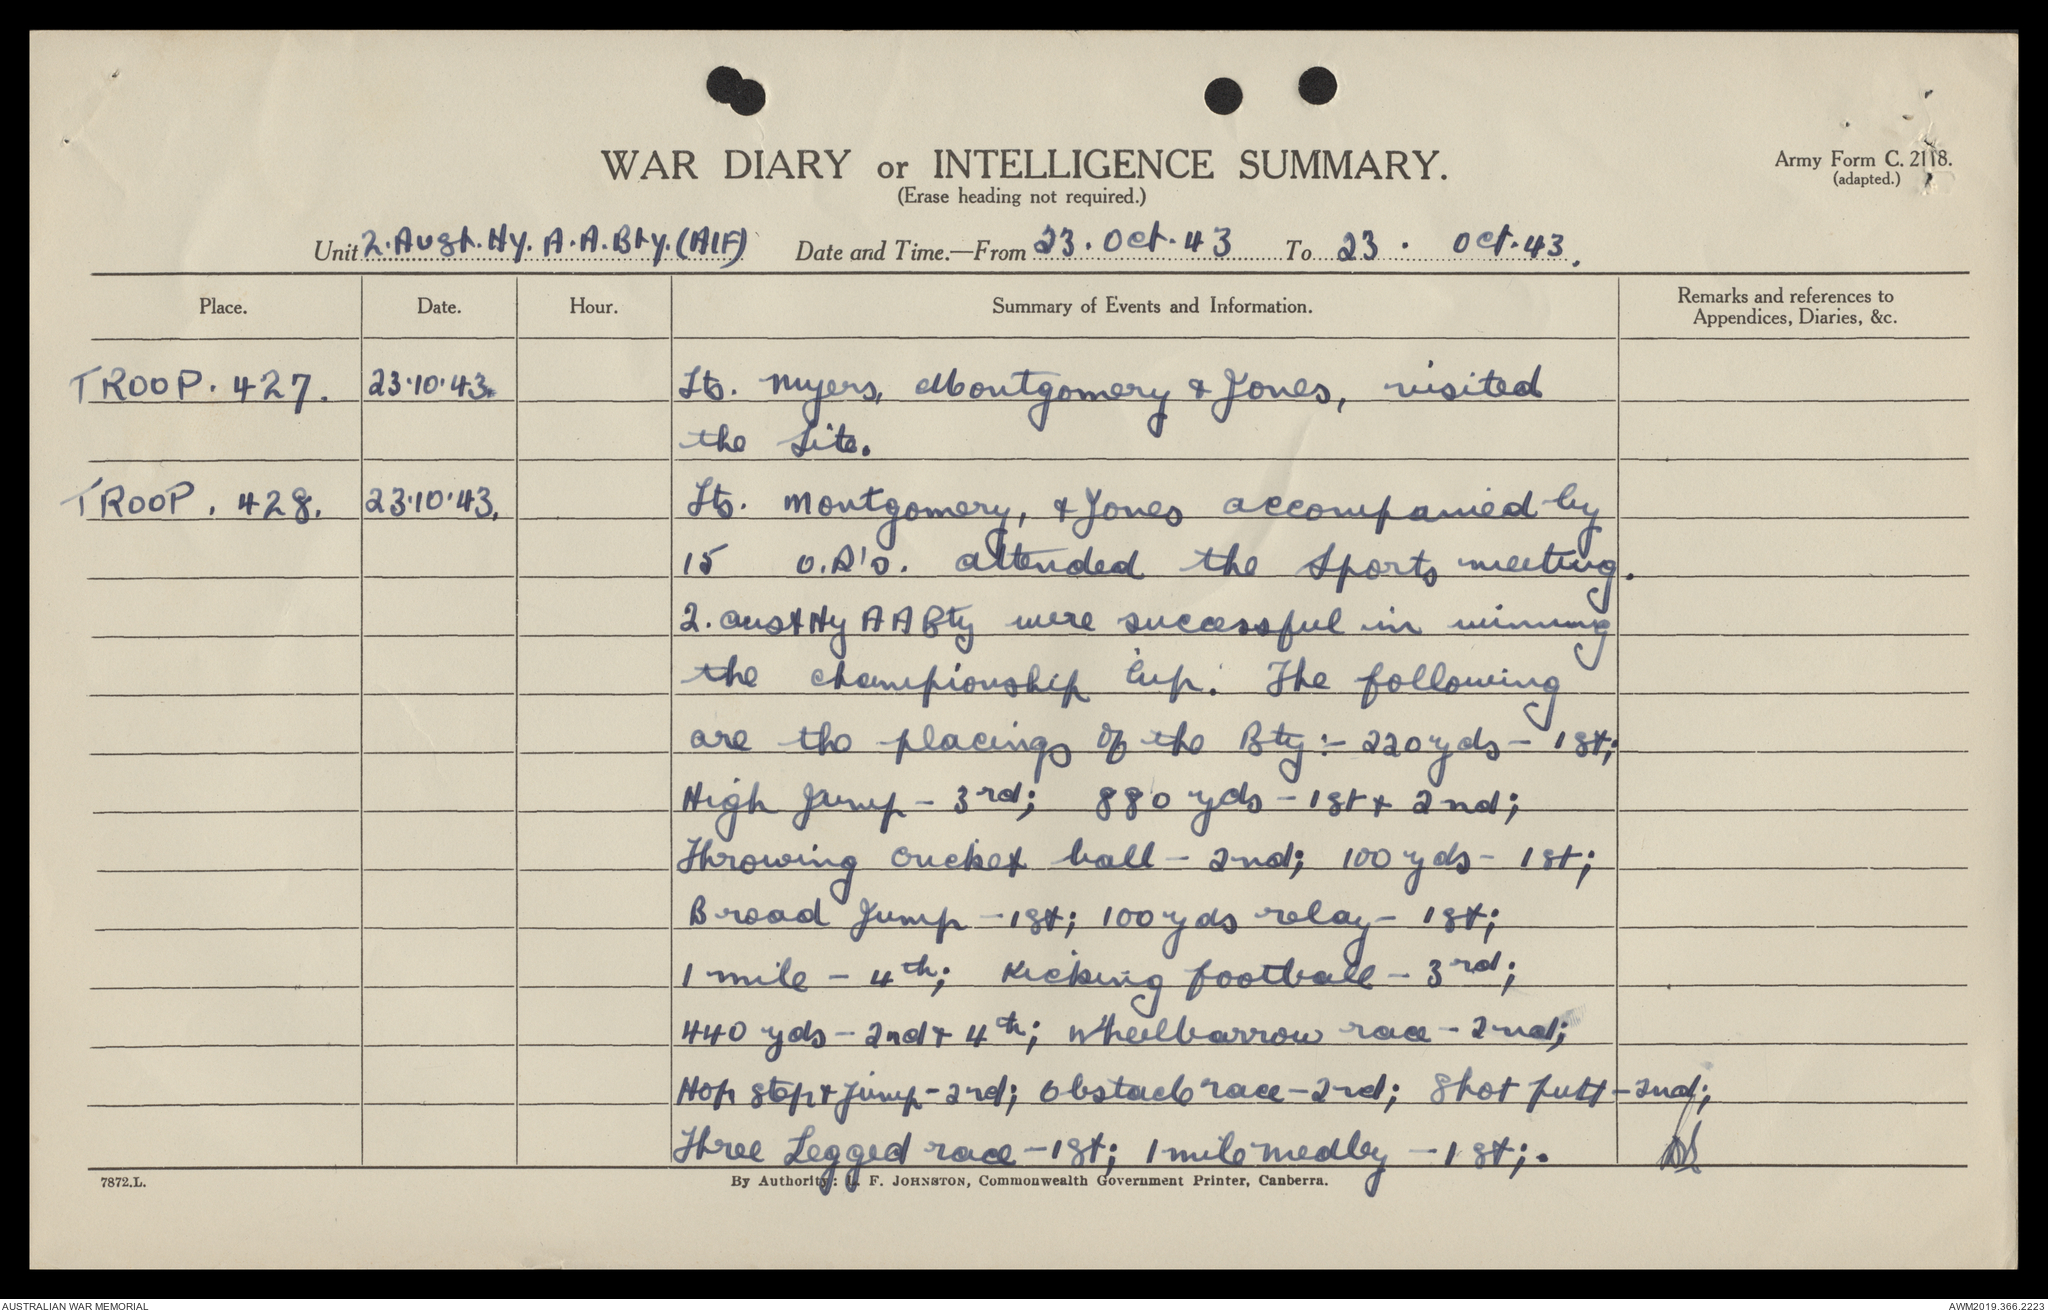 WAR DIARY or INTELLIGENCE SUMMARY.
(Erase heading not required.)
Army Form C. 2118.
(adapted.)
Unit 2. Aust. Hy. A.A. Bty. (AIF) Date and Time.—From 23. Oct. 43 To 23. Oct. 43.
Place. Date. Hour. Summary of Events and Information. Remarks and references to
Appendices, Diaries, &c.
TROOP. 427. 23.10.43. Lts. Myers, Montgomery & Jones, visited
the Site.
TROOP. 428. 23.10.43. Lts. Montgomery, & Jones accompanied by
15 O.R's. attended the Sports meeting.
2. Aust Hy A A Bty were successful in winning
the championship Cup. The following
are the placings of the Bty :- 220 yds - 1st;
High Jump - 3rd; 880 yds - 1st & 2nd;
Throwing cricket ball - 2nd; 100 yds - 1st;
Broad Jump - 1st; 100 yds relay - 1st;
1 mile - 4th; Kicking football - 3rd;
440 yds - 2nd & 4th; Wheelbarrow race - 2nd;
Hop step & Jump - 2nd; Obstacle race - 2nd; Shot putt - 2nd;
Three Legged race - 1st; 1 mile medley - 1st;.
7872.L. By Authority: L. F. JOHNSTON, Commonwealth Government Printer, Canberra.
AUSTRALIAN WAR MEMORIAL AWM2019.366.2223